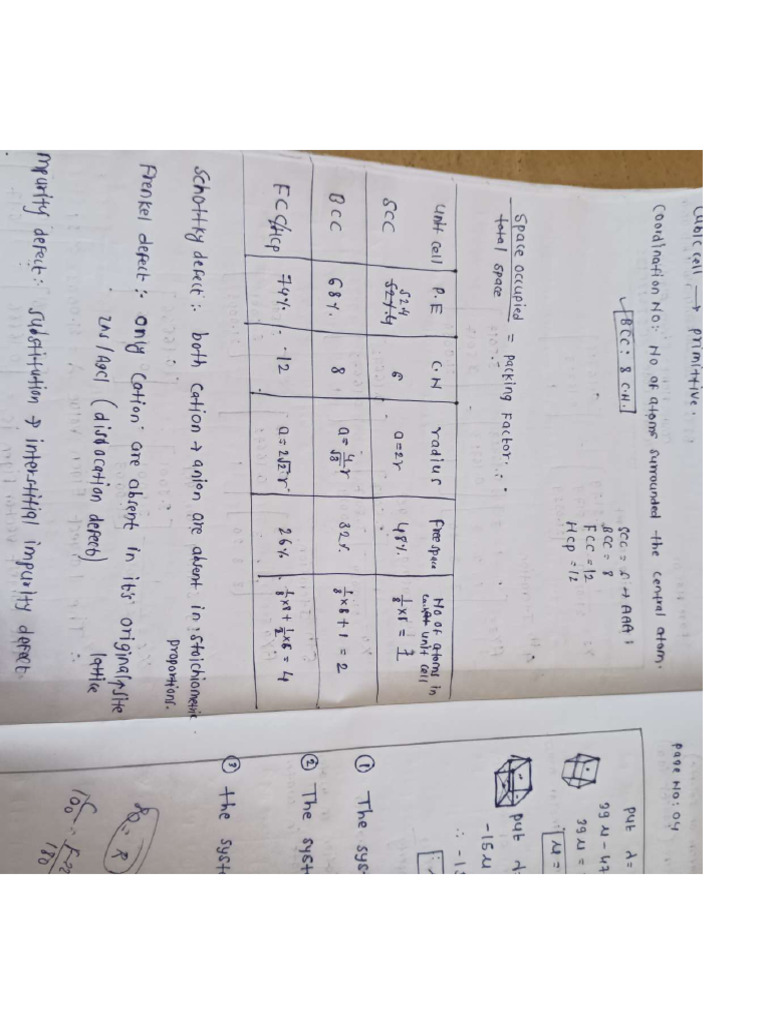 Cubic cell → primitive.
Coordination No: No of atoms surrounded the central atom.
BCC: 8 C.N.
SCC = 6 → AAA
BCC = 8
FCC = 12
Hcp = 12
Space occupied / total space = packing Factor.
Unit cell P.E C.N radius Free space No of atoms in unit cell
SCC 52.4 6 a=2r 48% 1/8 x 8 = 1
BCC 68% 8 a= 4/√3 r 32% 1/8 x 8 + 1 = 2
FCC/Hcp 74% 12 a=2√2 r 26% 1/8 x 8 + 1/2 x 6 = 4
Schottky defect: both cation → anion are absent in stoichiometric
proportions.
Frenkel defect: only cation are absent in its original site
lattice
zns/Agcl (dislocation defect)
mpurity defect: substitution → interstitial impurity defect
page No: 04
put λ=
29μ - 47
29μ =
μ =
put λ=
-15μ
① The sys
② The syst
③ the syst